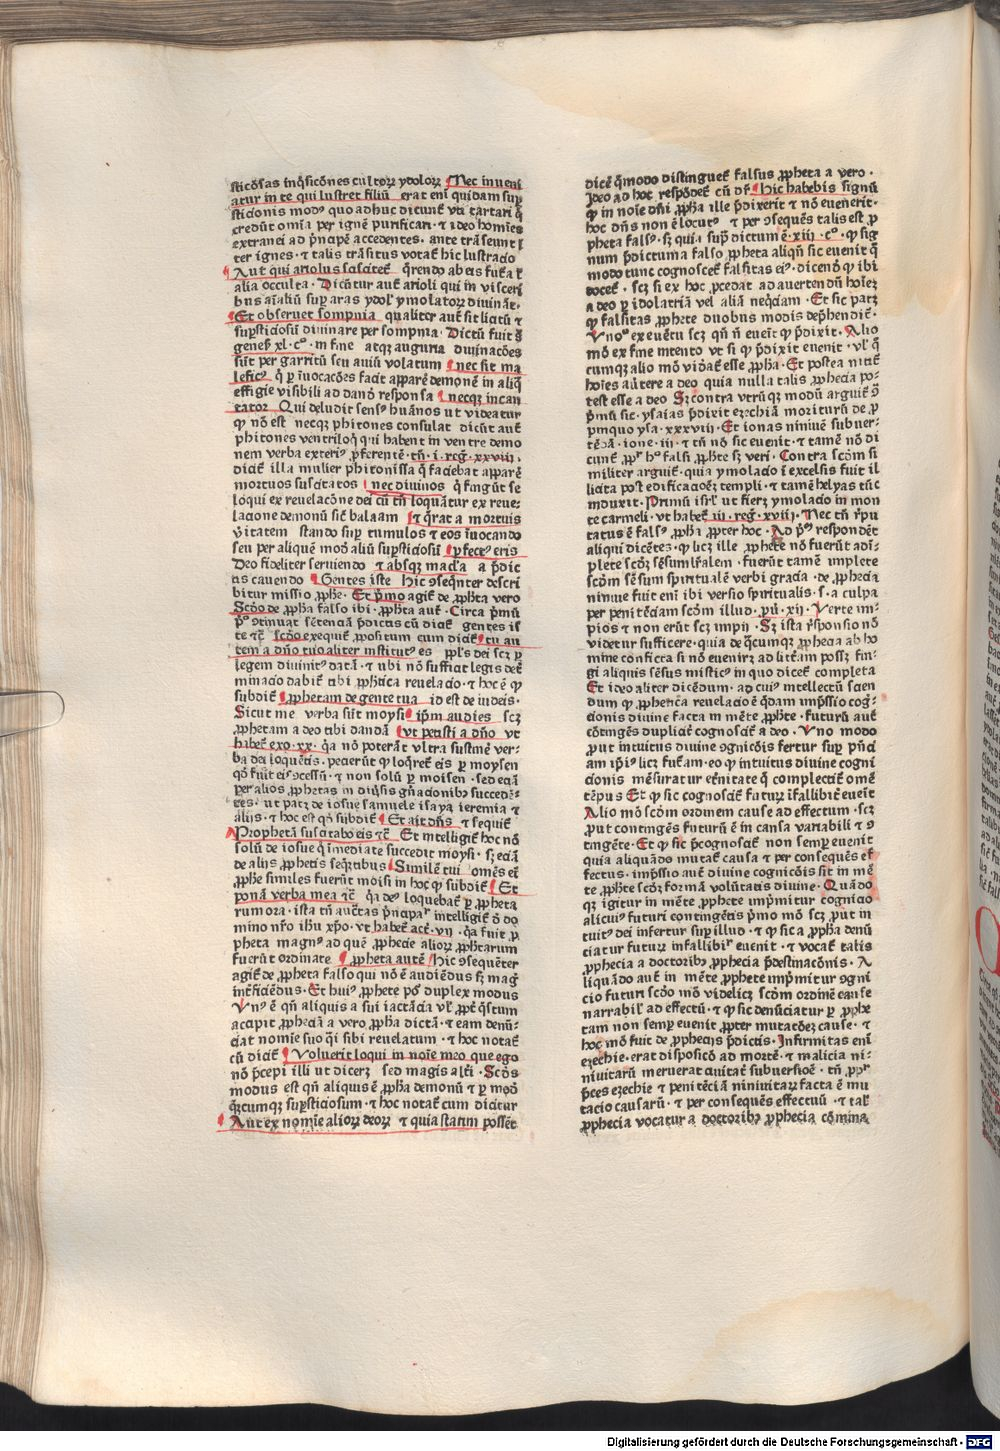 sticōsas inq̄sicōnes cultorꝝ ydolorꝝ Nec inueni
atur in te qui lustret filiū erat enī quidam suꝑ
sticionis modꝰ quo adhuc dicunt᷑ vti tartari q̄
credūt omīa per ignē purificari · ⁊ ideo homīes
extranei ad p̄ncipē accedentes · ante trāseunt ꝑ
ter ignes · ⁊ talis trāsitus votat᷑ hic lustracio
Aut qui ariolus sciscitet᷑ q̄rendo ab eis futa ꝉ
alia occulta · Dicūtur aut᷑ arioli qui in visceri
bus aīaliū suꝑ aras ydoꝉ ymolatorꝝ diuināt ·
Et obseruet sompnia qualiter aut᷑ sit licitū ⁊
suꝑsticiosū diuinare per sompnia · Dictū fuit s̄
geneſ xl · cº · in fine atqꝫ auguria diuinacōes
sūt per garritū seu auiū volatum nec sit ma
leficꝰ q̄ ꝑ īuocacōes facit apparē demonē in aliq̄
effigie visibili ad danō responsa necqꝫ incan
tator Qui deludit sensꝰ huānos ut videatur
ꝙ nō est necqꝫ phitones consulat dicūt aut᷑
phitones ventriloq̄ qui habent in ventre demo
nem verba exteriꝰ ꝓferentē · tn̄ · i · reg᷑ · xxviii ·
dicit᷑ illa mulier phitonissa q̄ faciebat apparē
mortuos suscitatos nec diuinos q̄ fingūt se
loqui ex reuelacōne dei cū tn̄ loquātur ex reue-
lacione demonū sic᷑ balaam Et q̄rat a mortuis
v̄itatem stando suꝑ tumulos ⁊ eos īuocando
seu per aliquē mod̄ aliū suꝑsticiosū ꝑfectꝰ eris
Deo fideliter seruiendo ⁊ absqꝫ macꝉa a p̄dic
tis cauendo Gentes iste Hic ꝯseq̄nter descri
bitur missio ꝓphē · Et p̄mo agit᷑ de ꝓphēta vero
Scd̄o de ꝓphēa falso ibi · ꝓphēta aut᷑ · Circa p̄mū
pº ꝯtinuat sētenciā p̄dictis cū dicit᷑ gentes is
te ⁊c̄ scd̄o exequit᷑ ꝓpositum cum dicit᷑ tu au
tem a dn̄o tuo aliter institutꝰ es ppꝉs dei scꝫ ꝑ
legem diuinitꝰ datā · ⁊ ubi nō sufficiat legis det᷑
minacio dabit᷑ tibi ꝓphētica reuelacio · ⁊ hoc ē ꝙ
subdit᷑ ꝓphetam de gente tua id est de iudeis ·
Sicut me verba sūt moysi ip̄m audies scꝫ
ꝓphetam a deo tibi dandā vt petisti a dn̄o vt
habet᷑ exo · xx · q̄a nō poterāt vltra sustinē ver-
ba dei loquētis · pecierūt ꝙ loq̄ret᷑ eis ꝑ moysen
qd̄ fuit eis ꝯcessū · ⁊ non solū ꝑ moisen · sed eciā
per alios ꝓphetas in diu̓sis gn̄acionibꝫ succedē-
tes · ut patꝫ de iosue samuele isaya ieremia ⁊
aliis · ⁊ hoc est qd̄ subdit᷑ Et ait dn̄s ⁊ sequit᷑
Prophetā suscitabo eis ⁊c̄ Et intelligit᷑ hoc nō
solū de iosue q̄ īmediate succedit moysi · sꝫ eciā
de aliis ꝓphetis seq̄ntibus Similē tui omēs em̄
ꝓphē similes fuerūt moisi in hoc ꝙ subdit᷑ Et
ponā verba mea ⁊c̄ q̄a deꝰ loquebat᷑ ꝑ ꝓpheta
rum ora · ista tn̄ auctas p̄ncipaꝉr intelligit᷑ d̄ do
mino nr̄o ihū xp̄o · vt habet᷑ act᷑ · vii · q̄a fuit ꝓ
pheta magnꝰ ad quē ꝓphecie aliorꝝ ꝓphētarum
fuerūt ordinate ꝓpheta autē Hic ꝯsequēter
agit᷑ de ꝓpheta falso qui nō ē audiēdus sꝫ magꝭ
int᷑ficiēdus · Et huiꝰ ꝓphete pōt duplex modus
Vnꝰ ē qn̄ aliquis a sui iactācia vꝉ ꝓpt̄ q̄stum
accipit ꝓpheciā a vero ꝓphēa dictā · ⁊ eam denū-
ciat nomīe suo q̄i sibi reuelatum · ⁊ hoc notat᷑
cū dicit᷑ Voluerit loqui in noīe meo que ego
nō p̄cepi illi ut dicerꝫ sed magis alt̓i · Scd̄s
modus est qn̄ aliquis ē ꝓphēa demonū ⁊ ꝑ mod̄
q̄rcumqꝫ suꝑsticiosum · ⁊ hoc notat᷑ cum dicitur
Aut ex nomīe aliorꝝ deorꝝ ⁊ quia statim posset
dicē q̄modo distinguet᷑ falsus ꝓpheta a vero ·
Ideo ad hoc respōdet᷑ cū dr̄ Hic habebis signū
ꝙ in noīe dn̄i ꝓphēa ille p̄dixerit ⁊ nō euenerit ·
hoc dn̄s non ē locutꝰ ⁊ per ꝯsequēs talis est ꝓ
pheta falsꝰ · sꝫ quia supͣ dictum ē · xiii · cº · ꝙ sig
num p̄dictum a falso ꝓpheta aliqn̄ sic euenit q̄
modo tunc cognoscet᷑ falsitas eiꝰ · dicend̄ ꝙ ibi
docet᷑ · scꝫ si ex hoc ꝓcedat ad auertendū hoīez
a deo ꝑ idolatriā vel aliā neq̄ciam · Et sic patꝫ
ꝙ falsitas ꝓphete duobus modis dep̄hendit᷑ ·
Vnoº ex euētu scꝫ qn̄ n̄ eueīt ꝙ p̄dixit · Alio
mō ex fine intento vt si ꝙ p̄dixit euenit · vꝉ q̄
cumqꝫ alio mō vid̓at᷑ esse ꝓphēa · Et postea nitat᷑
hoīes au̓tere a deo quia nulla talis ꝓphecia po-
test esse a deo Sꝫ contra vtrūqꝫ modū arguit᷑ ꝯ
p̄mū sic · ysaias p̄dixit ezechiā moriturū de ꝓ
pinquo ysa · xxxviii · Et ionas niniuē subuer-
tēdā · ione · iii · ⁊ tn̄ nō sic euenit · ⁊ tamē nō di
cunt᷑ ꝓpͬ hº falsi ꝓphēte sꝫ veri · Contra scd̄m si
militer arguit᷑ · quia ymolacio ī excelsis fuit il
licita post edificacioēz templi · ⁊ tamē helyas tūc
induxit · Primū isrꝉ ut fierꝫ ymolacio in mon
te carmeli · vt habet᷑ iii · reg᷑ · xviii · Nec tn̄ r̄pu
tatus ē falsꝰ ꝓphēa ꝓpter hoc · Ad pͫ respondēt
aliqui dicētes · ꝙ licꝫ ille ꝓphēte nō fuerūt adī-
plete scd̄ꝫ sēsum lr̄alem · fuerūt tamē implete
scd̄m sēsum spiritualē verbi gracia · de ꝓphecia
niniue fuit enī ibi versio spiritualis · s · a culpa
per penitēciam scd̄m illud · ꝓu̓ · xii · Verte im-
pios ⁊ non erūt scꝫ impii · Sꝫ ista r̄sponsio nō
videtur sufficere · quia de q̄cumqꝫ ꝓphecia ab ho
mine conficta si nō euenirꝫ ad litt̓am possꝫ fin-
gi aliquis sēsus misticꝰ in quo dicet᷑ completa
Et ideo aliter dicēdum · ad cuiꝰ intellectū scien
dum ꝙ ꝓphetica reuelacio ē q̄dam imp̄ssio cog-
cionis diuine facta in mēte ꝓphēte · futurū aut᷑
cōtingēs duplicit᷑ cognoscit᷑ a deo · Vno modo
ꝓut intuitus diuine ꝯgnicōis fertur suꝑ p̄nci
am ip̄iꝰ licꝫ fut᷑am · eo ꝙ intuitus diuine cogni
cionis mēsuratur et̓nitate q̄ complectit᷑ omē
tēpus Et ꝙ sic cognoscit᷑ futurꝝ īfallibilr̄ eueīt
Alio mō scd̄m ordinem cause ad effectum · scꝫ
ꝓut contingēs futurū ē in causa variabili ⁊ ꝯ
tingēte · Et ꝙ sic p̄cognoscit᷑ non semꝑ euenit
quia aliquādo mutat᷑ causa ⁊ per consequēs ef
fectus · imp̄ssio aut᷑ diuine cognicōis sit in mē
te ꝓphēte scd̄ꝫ formā volūtatis diuine · Quādo
qꝫ igitur in mēte ꝓphete imp̄mitur cognicio
alicuiꝰ futuri contingētis p̄mo mō scꝫ ꝓut in
tuitꝰ dei infertur suꝑ illud · ⁊ ꝙ sic a ꝓphēa denū
ciatur futurꝝ infallibilͬ euenit · ⁊ vocat᷑ talis
ꝓphecia a doctoribꝫ ꝓphecia p̄destinacōnis · A
liquādo aut᷑ in mēte ꝓphete imp̄mitur ꝯgni
cio futuri scd̄o mō videlicꝫ scd̄m ordinē cause
narrabilͬ ad effectū · ⁊ ꝙ sic denūciatur ꝑ ꝓphē
tam non semꝑ euenit ꝓpter mutacōeꝫ cause · ⁊
hocͦ mō fuit de ꝓphecijs p̄dictis · Infirmitas enī
ezechie · erat disposicō ad mortē · ⁊ malicia ni-
niuitarū meruerat ciuitat̓ subuersioē · tn̄ ꝓpͬ
p̄ces ezechie ⁊ penitēciā niniuitarꝝ facta ē mu
tacio causarū · ⁊ per consequēs effectuū · ⁊ tal̓
ꝓphecia vocatur a doctoribꝫ ꝓphecia cōmina
Digitalisierung gefördert durch die Deutsche Forschungsgemeinschaft - DFG